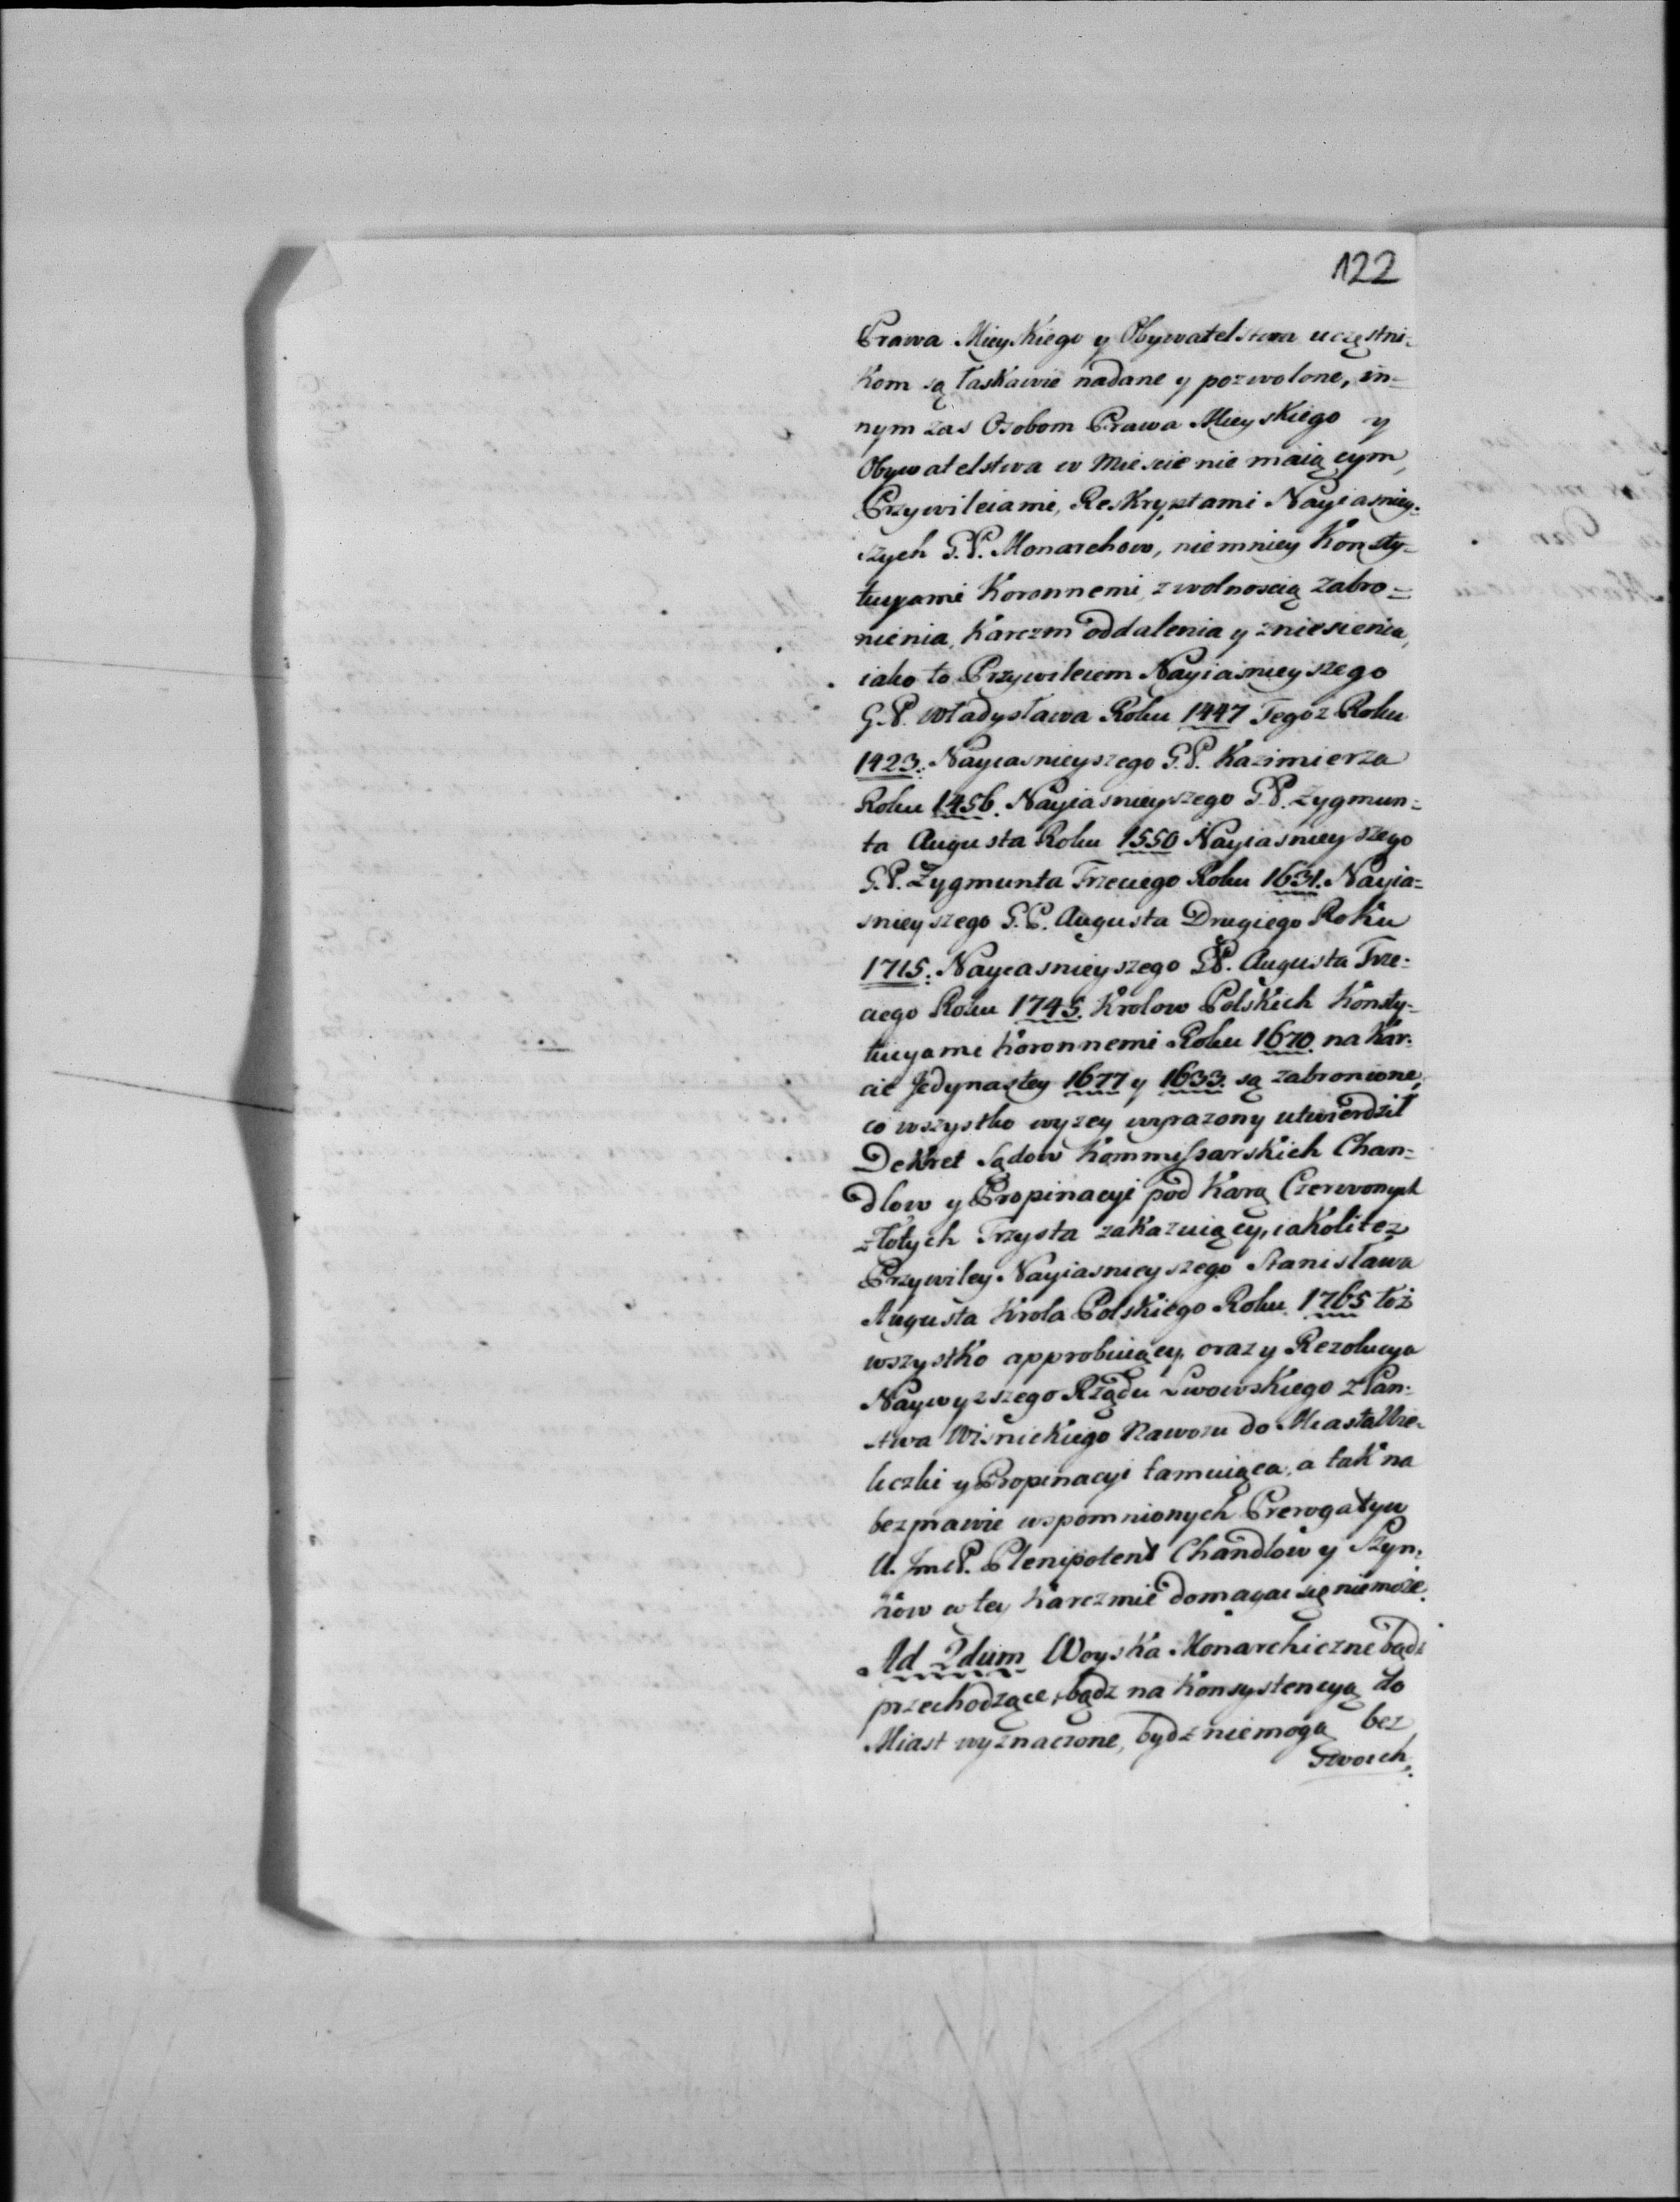 122
Prawa Mieyskiego y Obywatelstwa uczęstni=
kom są łaskawie nadane y pozwolone, in=
nym zas Osobom Prawa Mieyskiego y
Obywatelstwa w Miescie nie maiącym,
Przywileiami, Reskryptami Nayiasniey=
szych G.P. Monarchow, niemniey Konsty=
tucyami Koronnemi, z wolnoscią zabro=
nienia, Karczm oddalenia y zniesienia,
iako to Przywileiem Nayiasnieyszego
G.P. Władysława Roku 1447 Tegoz Roku
1423. Nayiasnieyszego G.P. Kazimierza
Roku 1456. Nayiasnieyszego G.P. Zygmun=
ta Augusta Roku 1550 Nayiasnieyszego
G.P. Zygmunta Trzeciego Roku 1631. Nayia=
snieyszego G.P. Augusta Drugiego Roku
1715. Nayiasnieyszego G.P. Augusta Trze=
ciego Roku 1745. Krolow Polskich Konsty=
tucyami Koronnemi Roku 1670. na Kar=
cie Jedynastey 1677 y 1633. są zabronione,
co wszystko wyzey wyrazony utwierdził
Dekret Sądow Kommissarskich Chan=
dlow y Propinacyi pod Karą Czerwonych
złotych Trzysta zakazuiący, iakoli tez
Przywiley Nayiasnieyszego Stanisława
Augusta Krola Polskiego Roku 1765 toż
wszystko approbuiący, oraz y Rezolucya
Naywyzszego Rządu Lwowskiego z Pan=
stwa Wisnickiego Nawozu do Miasta Wie=
liczki y Propinacyi tamuiąca, a tak na
bezprawie wspomnionych Prerogatyw
U. Jm P. Plenipotent Chandlow y Szyn=
kow w tey Karczmie domagac się niemoże.
Ad 2dum Woyska Monarchiczne bądz
przechodzące, bądz na Konsystencyą do
Miast wyznaczone, bydz niemogą bez
Swoich,